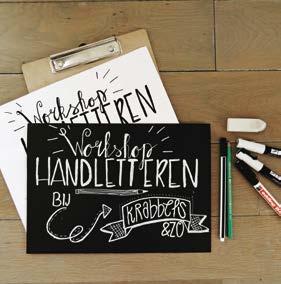 Workshop
HANDLETTEREN
Workshop
HANDLETTEREN
BIJ
KRABBELS
&ZO